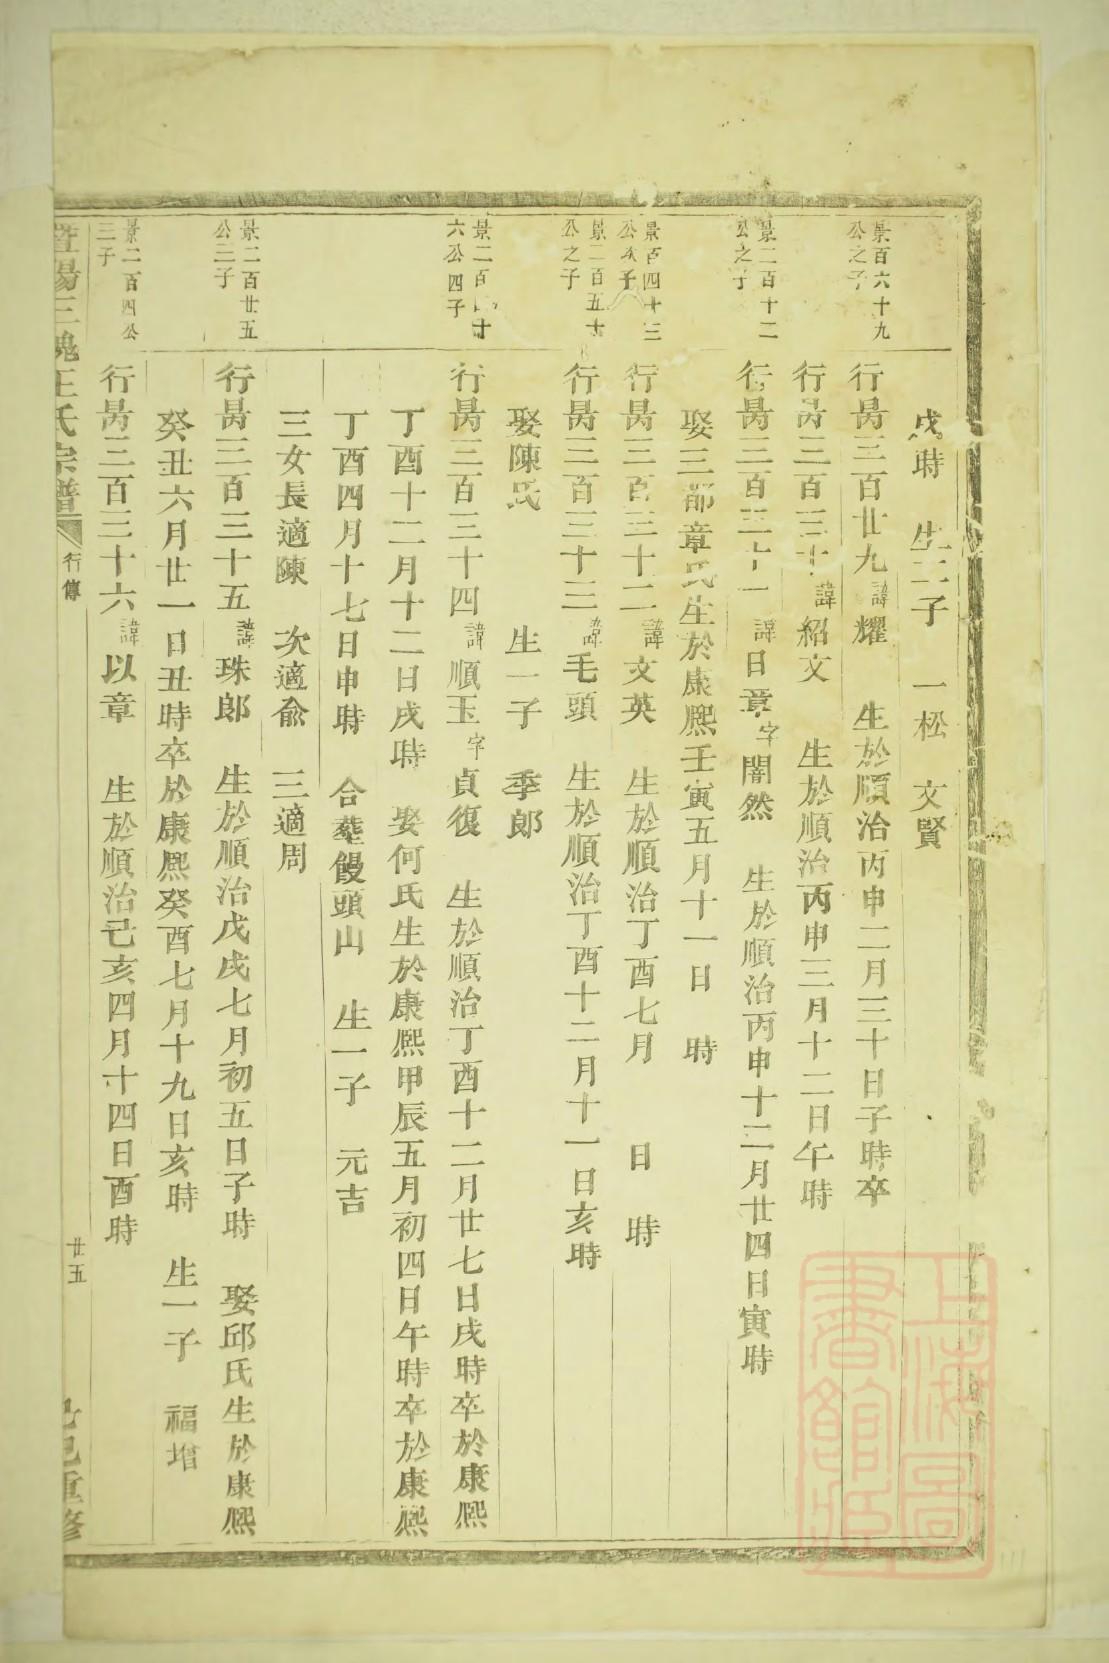 戌時　生二子　一松　文賢
景百六十九
公之子
行昺三百廿九諱耀　生於順治丙申二月三十日子時卒
行昺三百三十諱紹文　生於順治丙申三月十二日午時
景二百十二
公之子
行昺三百三十一諱日章字闇然　生於順治丙申十二月廿四日寅時
娶三都章氏生於康熙壬寅五月十一日　時
景百四十三
公次子
行昺三百三十二諱文英　生於順治丁酉七月　日　時
景二百五十
公之子
行昺三百三十三諱毛頭　生於順治丁酉十二月十一日亥時
娶陳氏　生一子　季郎
景二百十
六公四子
行昺三百三十四諱順玉字貞復　生於順治丁酉十二月廿七日戌時卒於康熙
丁酉十二月十二日戌時　娶何氏生於康熙甲辰五月初四日午時卒於康熙
丁酉四月十七日申時　合塟饅頭山　生一子　元吉
三女長適陳　次適兪　三適周
景二百廿五
公三子
行昺三百三十五諱珠郎　生於順治戊戌七月初五日子時　娶邱氏生於康熙
癸丑六月廿一日丑時卒於康熙癸酉七月十九日亥時　生一子　福增
景二百四公
三子
行昺三百三十六諱以章　生於順治己亥四月十四日酉時
暨陽三槐王氏宗譜　行傳　廿五　己巳重修
上海圖
書館藏